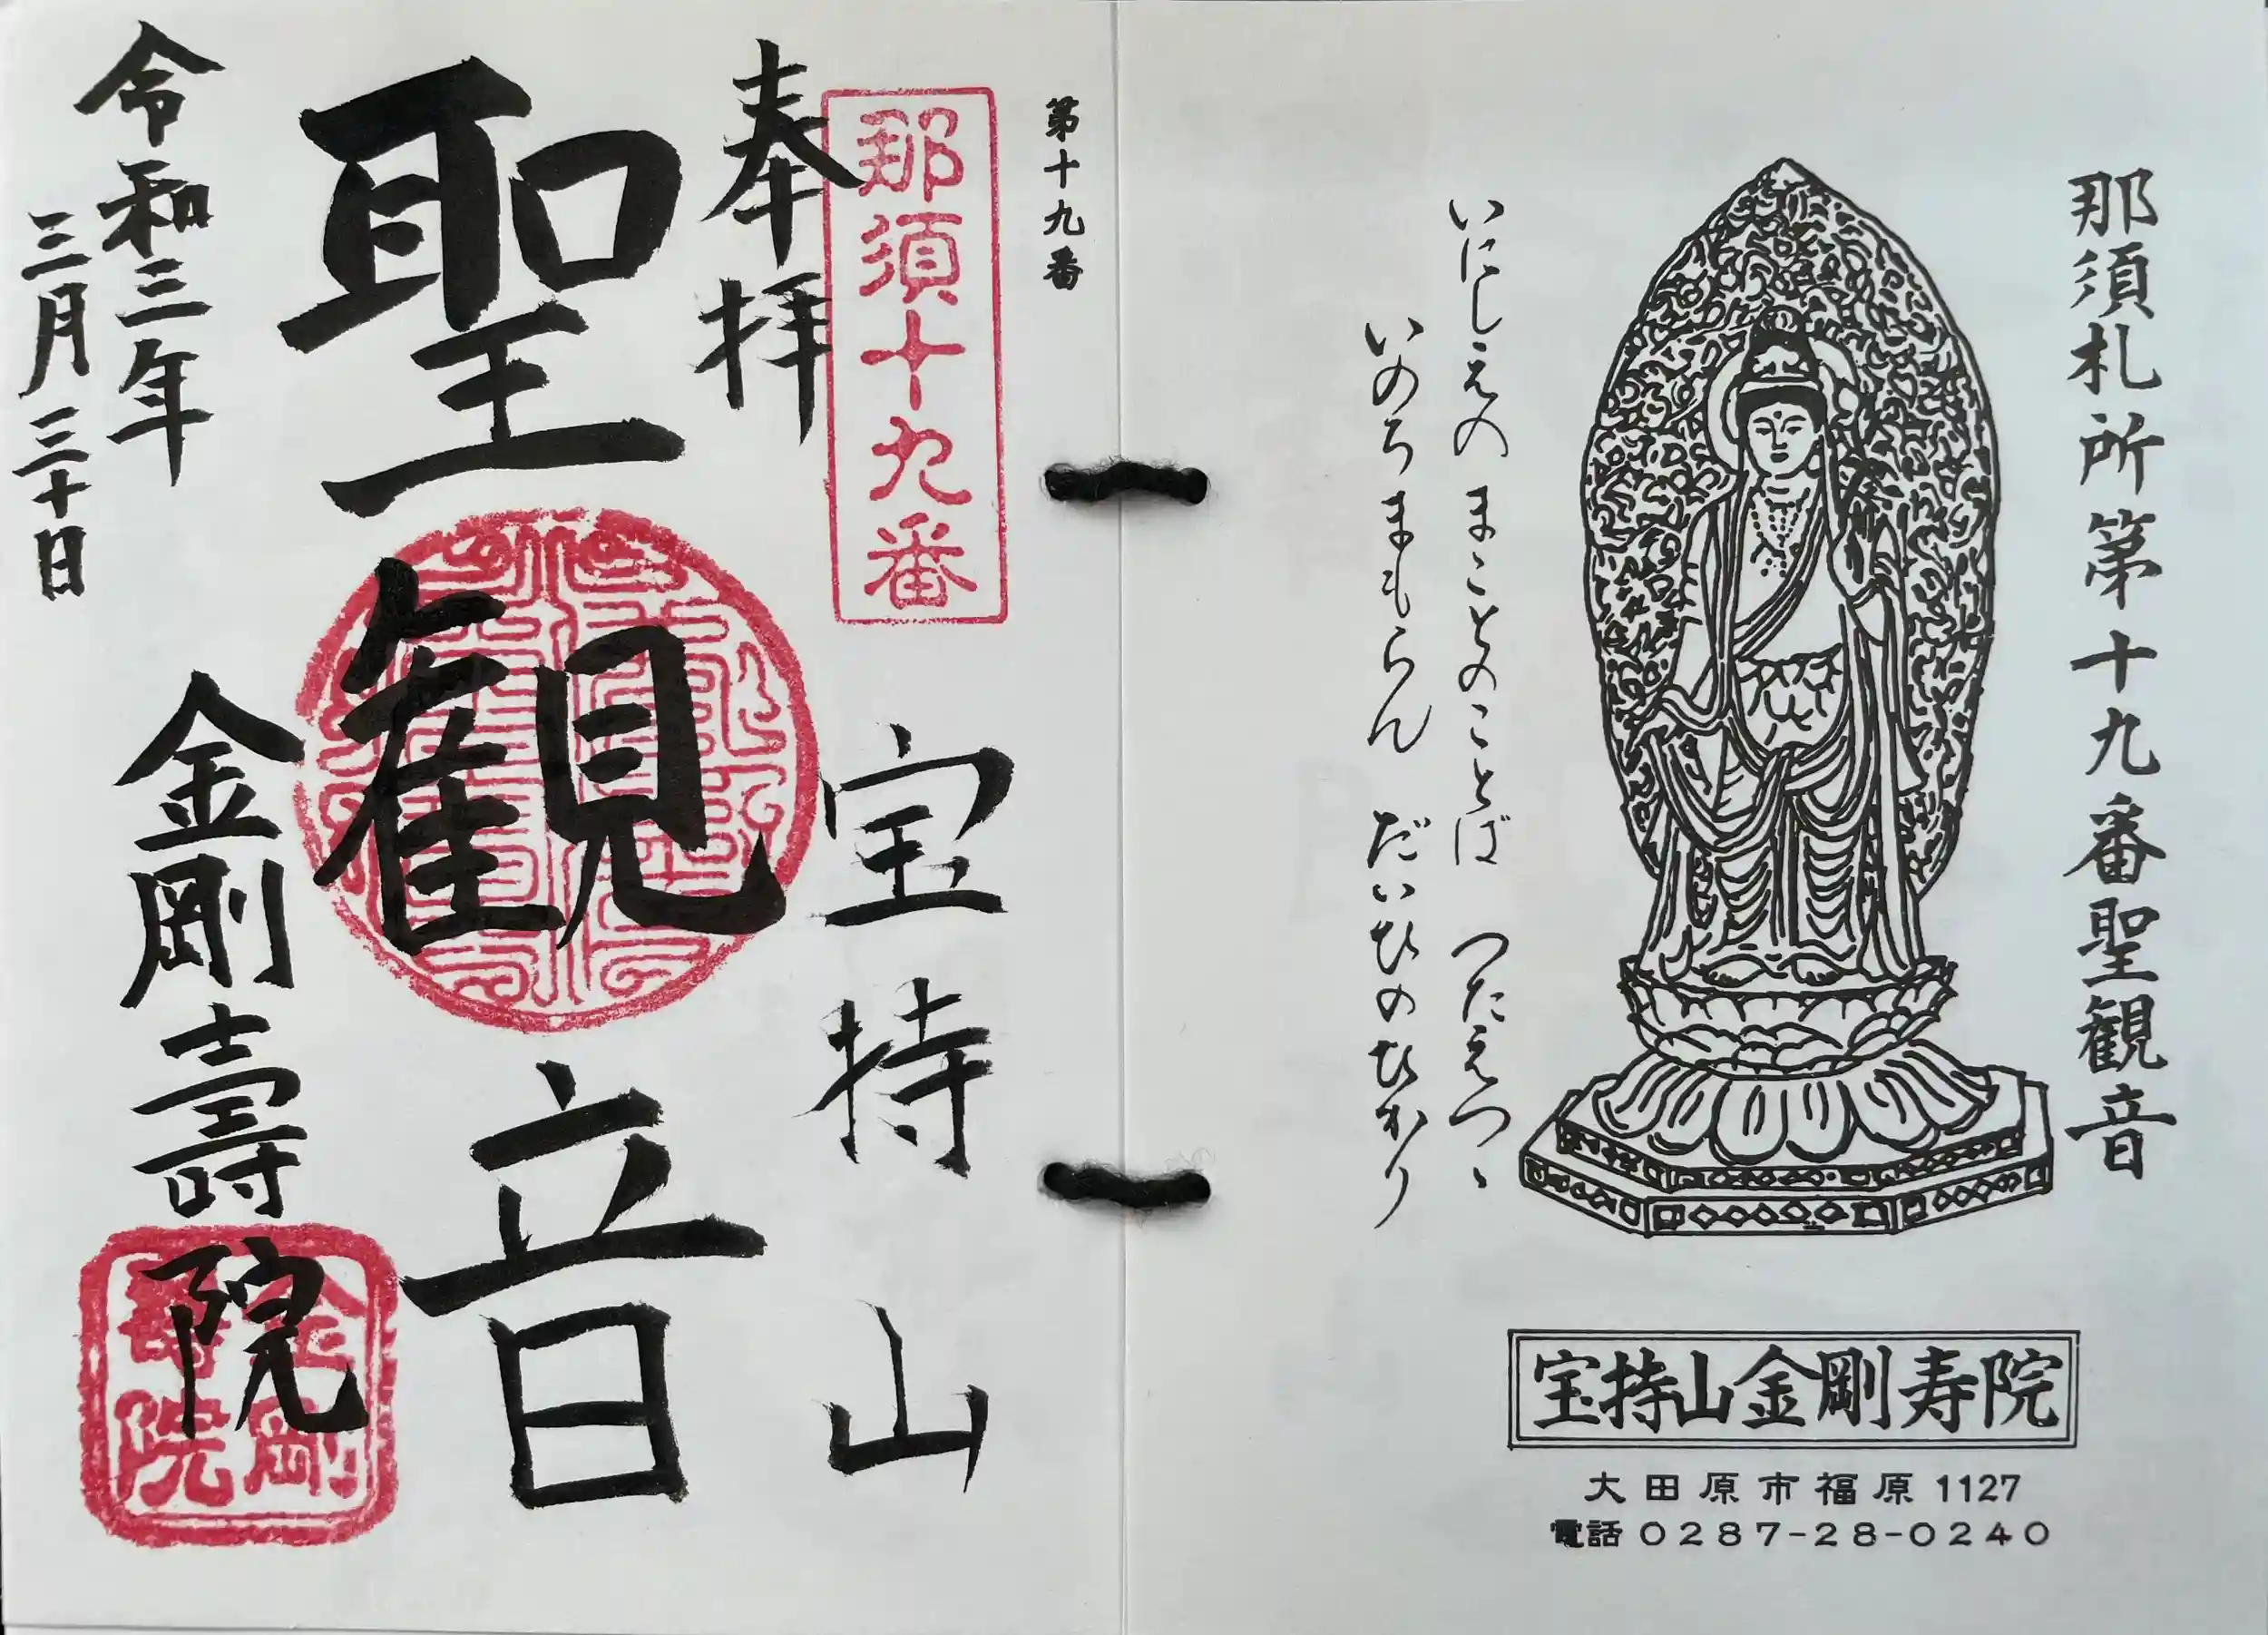 那須札所第十九番聖観音
いにしえの まことのことば つたえつゝ
いのちまもらん だいひのひかり
宝持山金剛寿院
大田原市福原1127
電話0287-28-0240
第十九番
那須十九番
奉拝
宝持山
聖観音
令和三年
三月三十日
金剛壽院
金剛
壽院